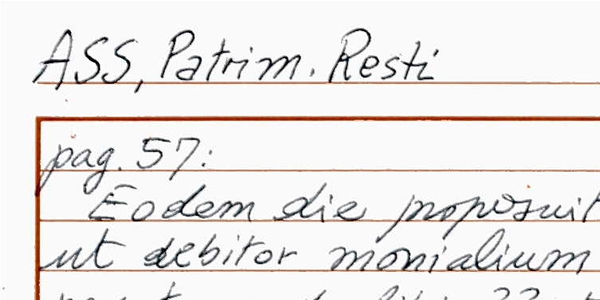 ASS, Patrim. Resti
pag. 57:
Eodem die proposuit
ut debitor monialium